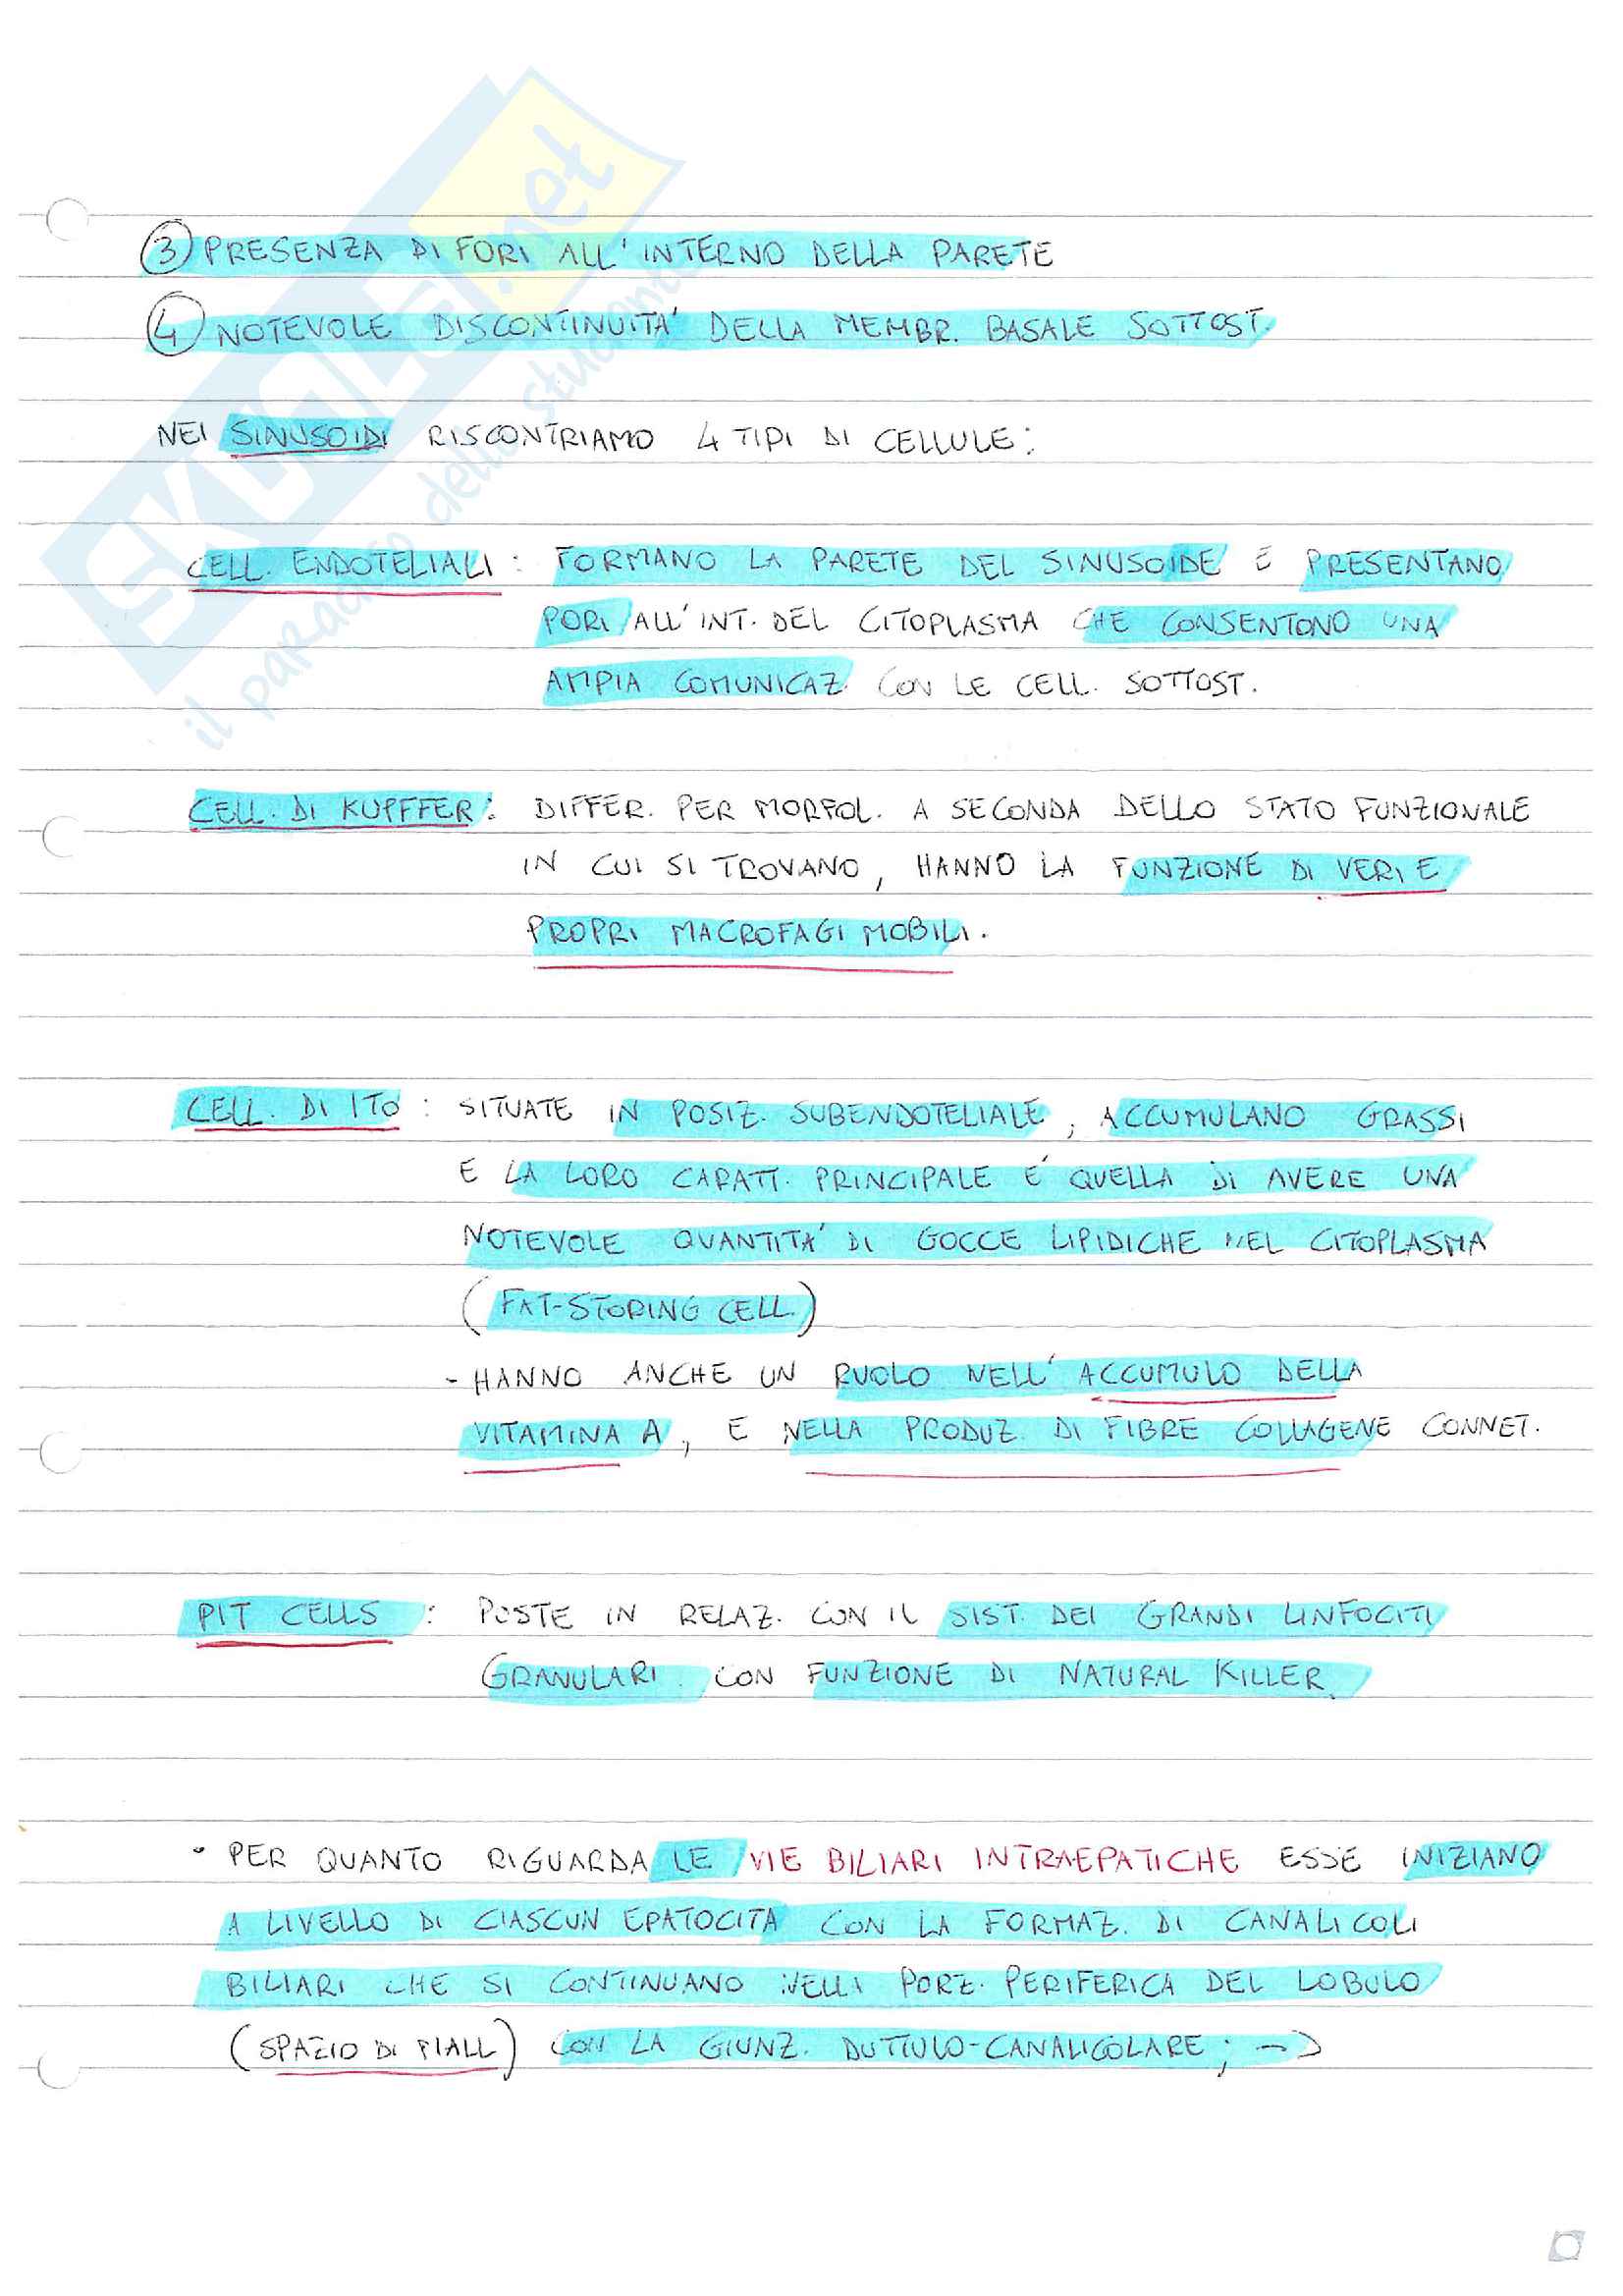 SKUOLA.net
il paradiso dello studente
3 PRESENZA DI FORI ALL'INTERNO DELLA PARETE
4 NOTEVOLE DISCONTINUITA' DELLA MEMBR. BASALE SOTTOST.
NEI SINUSOIDI RISCONTRIAMO 4 TIPI DI CELLULE:
CELL. ENDOTELIALI: FORMANO LA PARETE DEL SINUSOIDE E PRESENTANO
PORI ALL'INT. DEL CITOPLASMA CHE CONSENTONO UNA
AMPIA COMUNICAZ. CON LE CELL. SOTTOST.
CELL. DI KUPFFER: DIFFER. PER MORFOL. A SECONDA DELLO STATO FUNZIONALE
IN CUI SI TROVANO, HANNO LA FUNZIONE DI VERI E
PROPRI MACROFAGI MOBILI.
CELL. DI ITO: SITUATE IN POSIZ. SUBENDOTELIALE, ACCUMULANO GRASSI
E LA LORO CARATT. PRINCIPALE E' QUELLA DI AVERE UNA
NOTEVOLE QUANTITA' DI GOCCE LIPIDICHE NEL CITOPLASMA
(FAT-STORING CELL.)
- HANNO ANCHE UN RUOLO NELL'ACCUMULO DELLA
VITAMINA A, E NELLA PRODUZ. DI FIBRE COLLAGENE CONNET.
PIT CELLS: POSTE IN RELAZ. CON IL SIST. DEI GRANDI LINFOCITI
GRANULARI CON FUNZIONE DI NATURAL KILLER.
• PER QUANTO RIGUARDA LE VIE BILIARI INTRAEPATICHE ESSE INIZIANO
A LIVELLO DI CIASCUN EPATOCITA CON LA FORMAZ. DI CANALICOLI
BILIARI CHE SI CONTINUANO NELLA PORZ. PERIFERICA DEL LOBULO
(SPAZIO DI MALL) CON LA GIUNZ. DUTTULO-CANALICOLARE; →